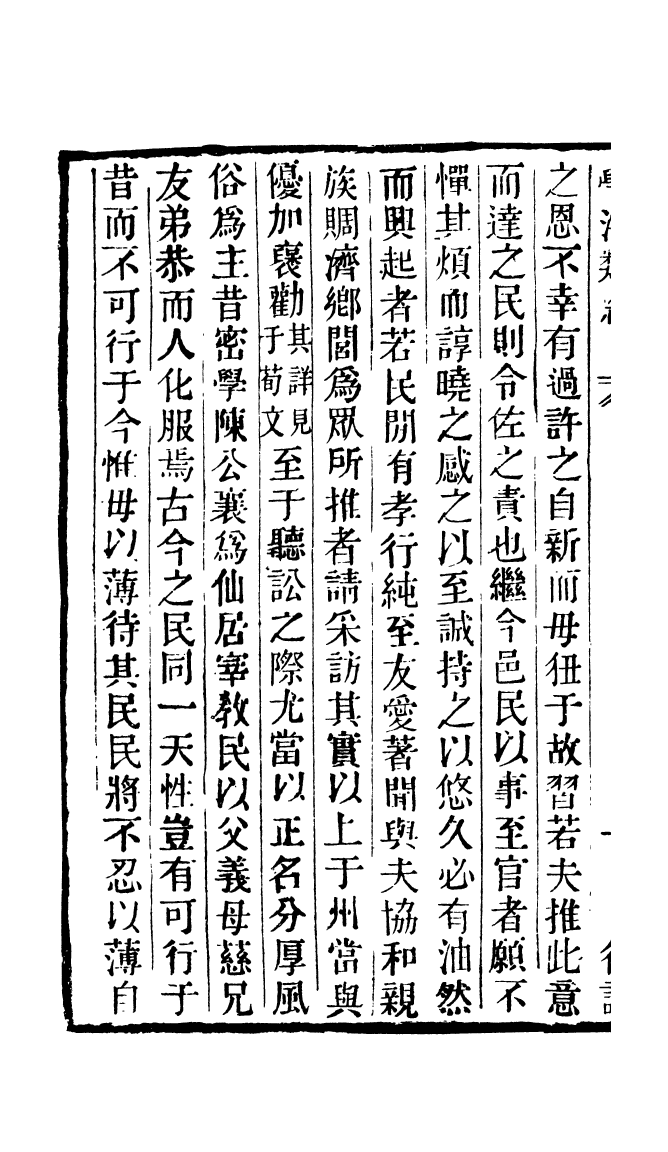 之恩不幸有過許之自新而毋狃于故習若夫推此意
而達之民則令佐之責也繼今邑民以事至官者願不
憚其煩而諄曉之感之以至誠持之以悠久必有油然
而興起者若民閒有孝行純至友愛著聞與夫協和親
族賙濟鄉閭爲眾所推者請采訪其實以上于州當與
優加襃勸其詳見于荀文至于聽訟之際尤當以正名分厚風
俗爲主昔密學陳公襄爲仙居宰教民以父義母慈兄
友弟恭而人化服焉古今之民同一天性豈有可行于
昔而不可行于今惟毋以薄待其民民將不忍以薄自